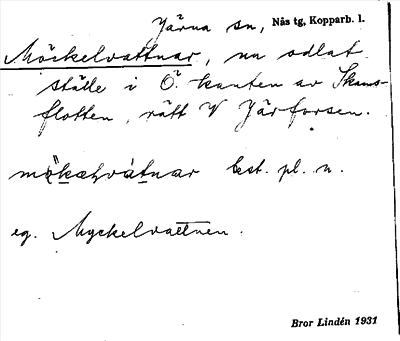 Järna sn, Nås tg, Kopparb. l.
Möckelvattnar, nu odlat
ställe i Ö. kanten av Skans-
flotten, rätt V Järforsen.
best. pl. n.
eg. Myckelvattnen.
Bror Lindén 1931